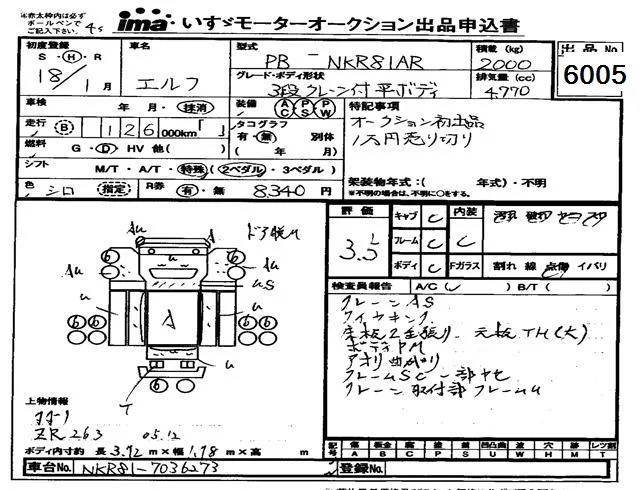 ※赤太枠内は必ず
ボールペンで
ご記入下さい。
4s
ima いすゞモーターオークション出品申込書
初度登録
S・H・R
18年 1月
車名
エルフ
型式
PB - NKR81AR
グレード・ボディ形状
3段クレーン付平ボディ
積載 (kg)
2000
排気量 (cc)
4,770
出品No
6005
車検 年・月・抹消
装備 AC PS PW
走行 B 126 000km「 」
タコグラフ
有・無 別体
( 年 / 月)
燃料 G・D・HV 他( )
シフト M/T・A/T・特殊(2ペダル・3ペダル)
色 シロ 指定 R券 有・無 8,340円
特記事項
オークション初出品
1万円売り切り
架装物年式:( 年式)・不明
※不明の場合は、不明に○をする。
評価
3.5
キャブ C
フレーム C
ボディ C
内装
C
Fガラス 割れ 線 点傷 イバリ
検査員報告 A/C( ) B/T( )
クレーンAS
床板2重張り 元板TH(大)
ボディPM
アオリ曲がり
フレームSC 一部サビ
クレーン取付部フレームU
Au
A
Au
Au
u
uS
u
A
u
u
T
上物情報
ZR263 05.12
ボディ内寸約 長 3.72m×幅 1.78m×高 m
車台No. NKR81-7036273
登録No.
記号 傷 板金 腐 塗 錆 凹凸曲 波 穴 目 レツ割
A B C P S U W H M T